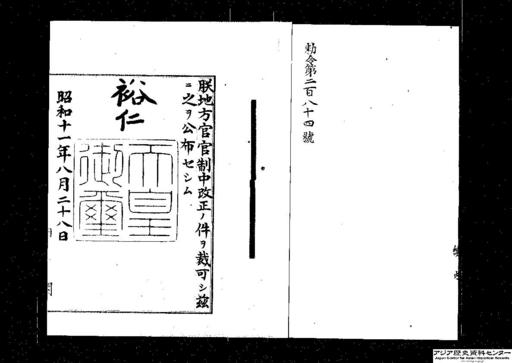 勅令第二百八十四號
朕地方官官制中改正ノ件ヲ裁可シ玆
ニ之ヲ公布セシム
裕仁
天皇
御璽
昭和十一年八月二十八日
内閣
アジア歴史資料センター
Japan Center for Asian Historical Records